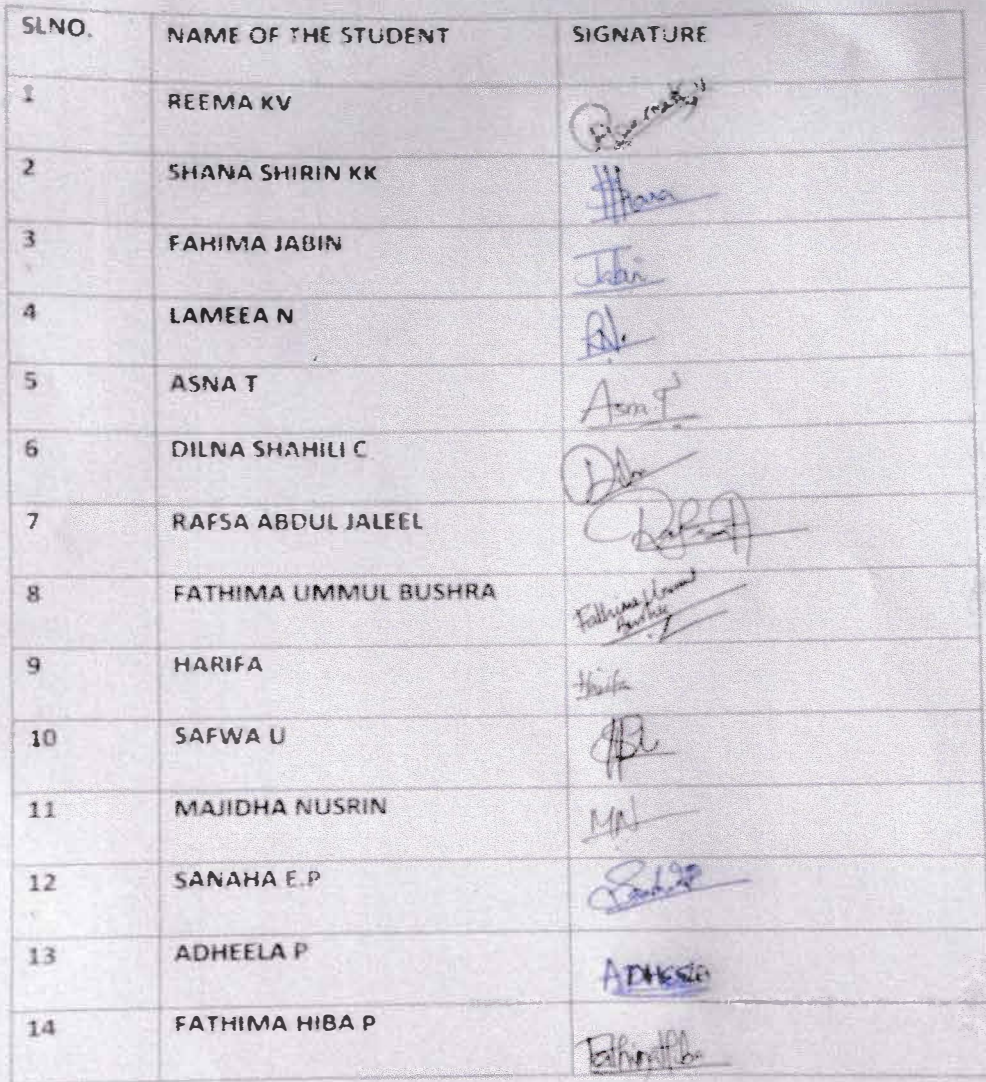 SLNO. NAME OF THE STUDENT SIGNATURE
1 REEMA KV
2 SHANA SHIRIN KK Shana
3 FAHIMA JABIN Jabin
4 LAMEEA N
5 ASNA T Asna T
6 DILNA SHAHILI C Dilna
7 RAFSA ABDUL JALEEL
8 FATHIMA UMMUL BUSHRA Fathima Ummul
Bushra
9 HARIFA Harifa
10 SAFWA U
11 MAJIDHA NUSRIN MN
12 SANAHA E.P
13 ADHEELA P ADHEELA
14 FATHIMA HIBA P Fathima Hiba